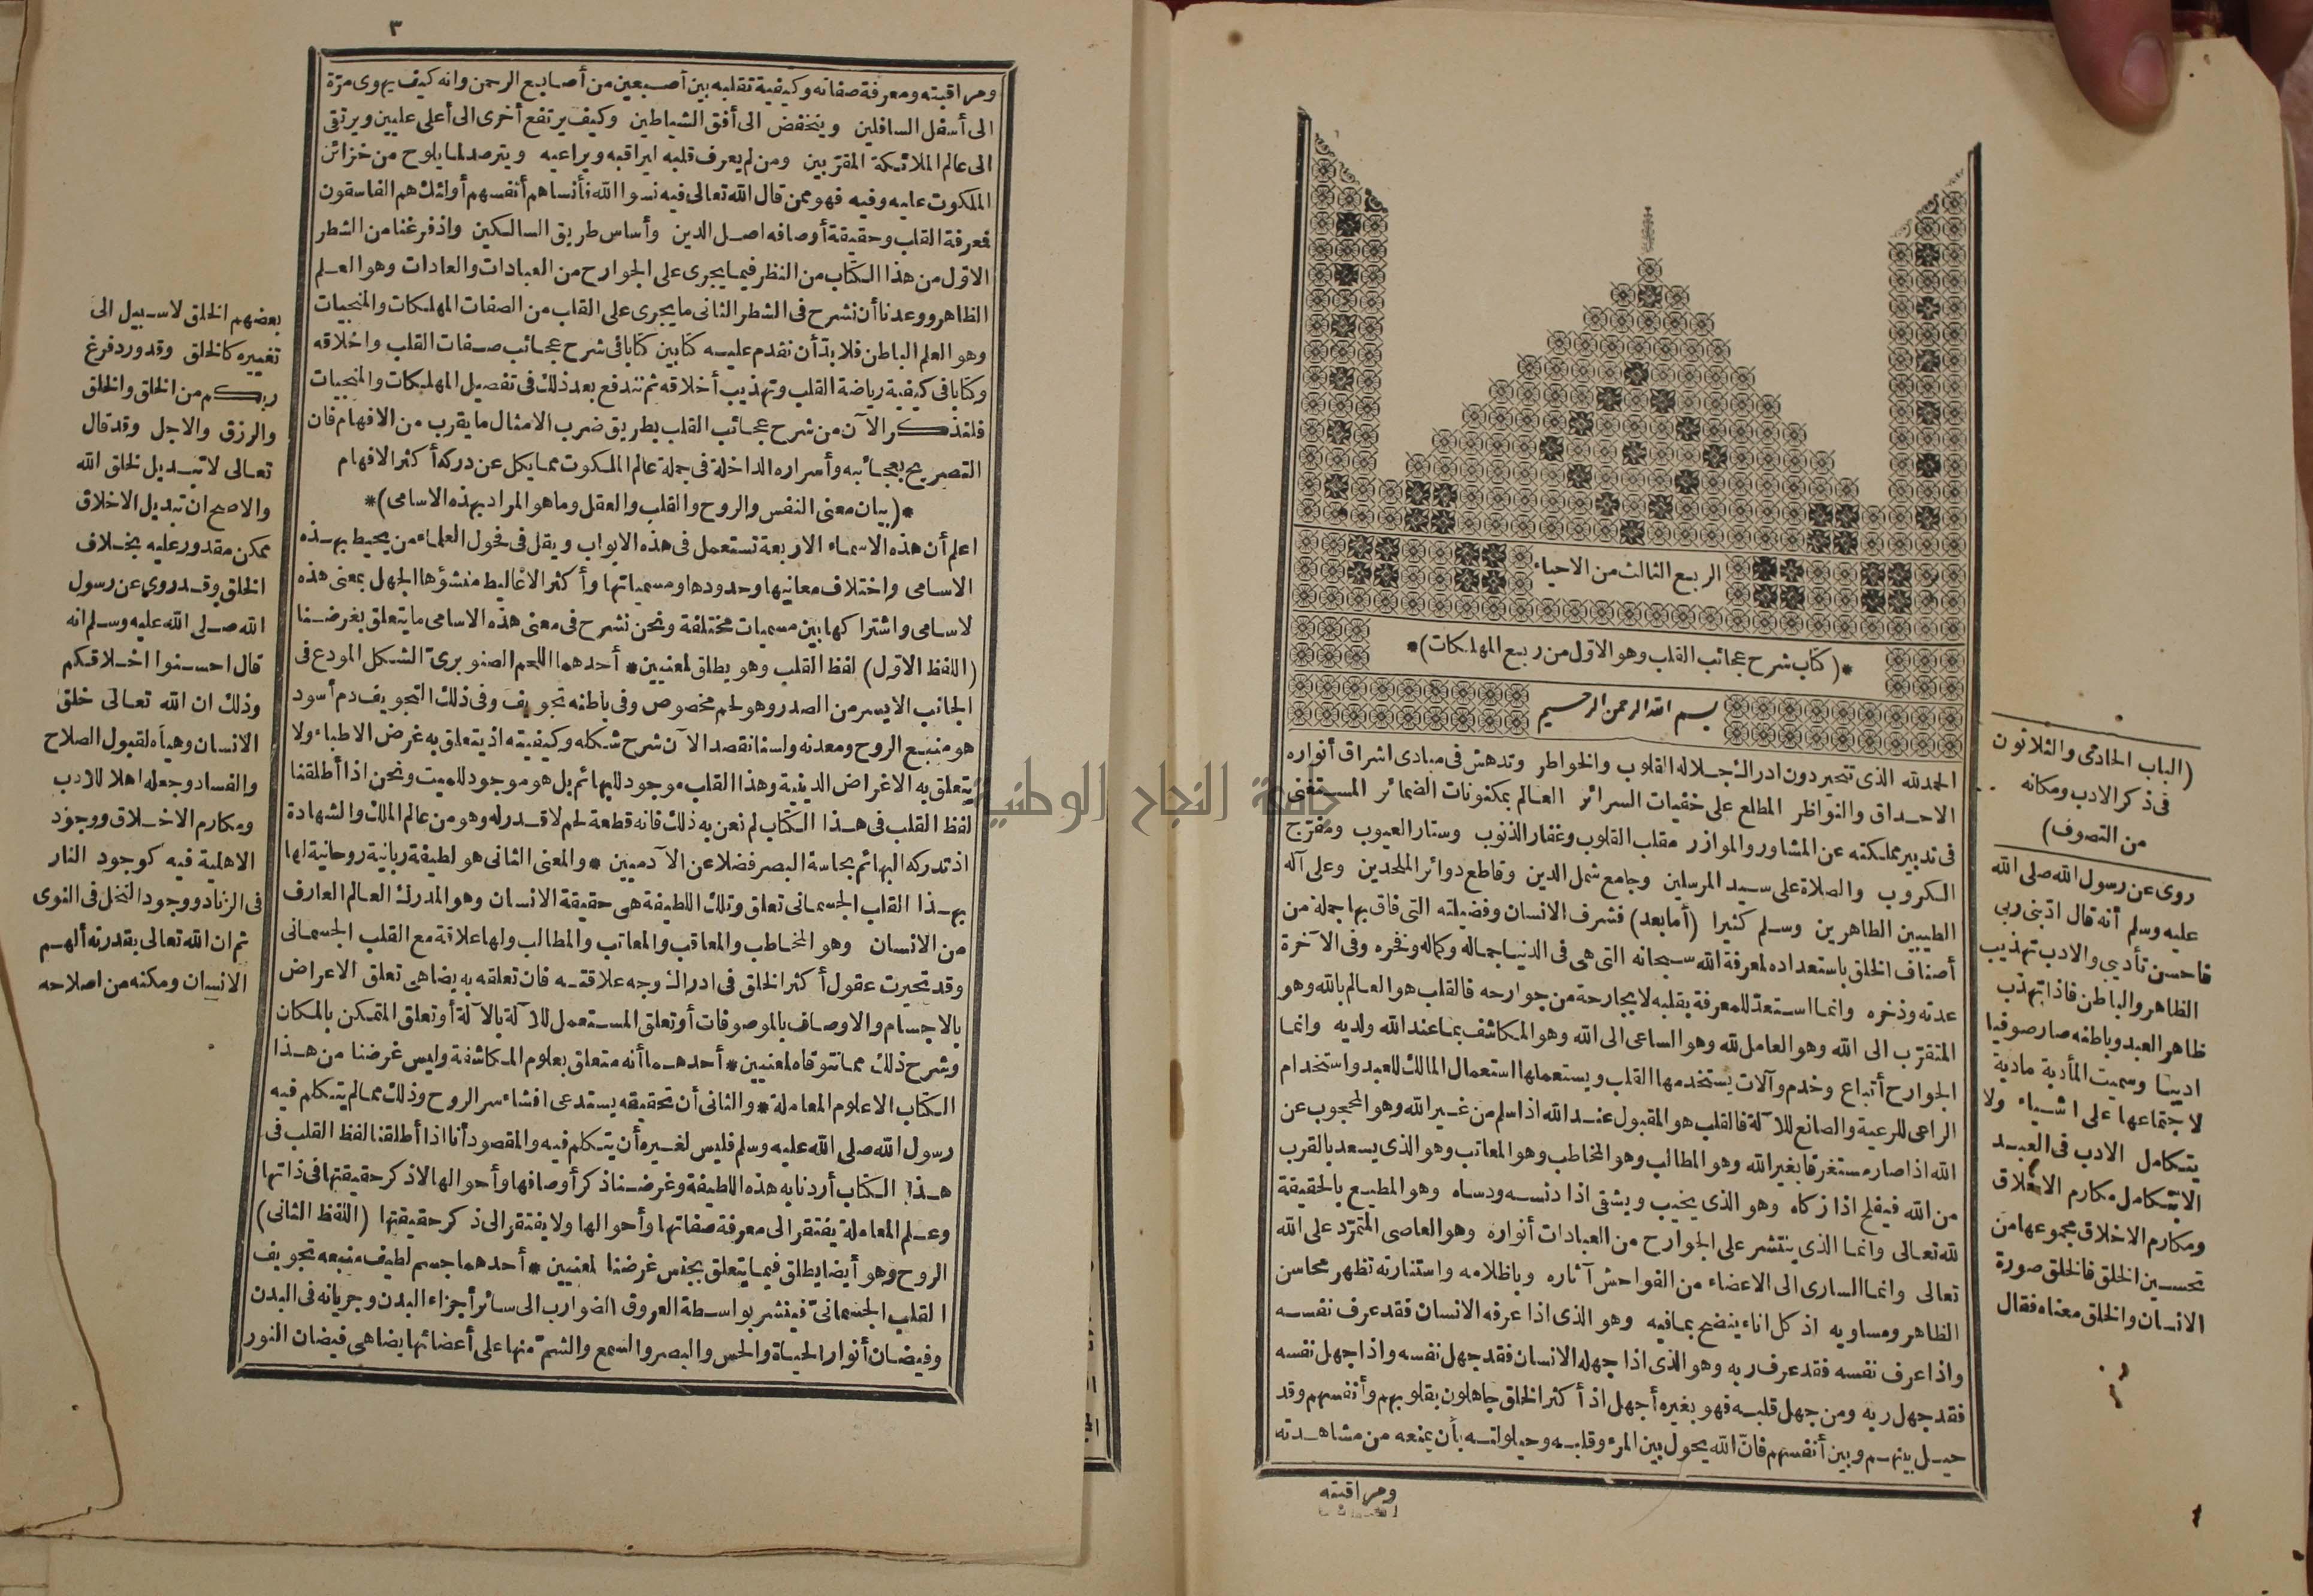 الربع الثالث من الاحياء
*(كتاب شرح عجائب القلب وهو الاول من ربع المهلكات)*
بسم الله الرحمن الرحيم
الحمد لله الذى تتحير دون ادراك جلاله القلوب والخواطر وتدهش فى مبادى اشراق أنواره
الاحداق والنواظر المطلع على خفيات السرائر العالم بمكنونات الضمائر المستغنى
فى تدبير مملكته عن المشاور والموازر مقلب القلوب وغفار الذنوب وستار العيوب ومفرّج
الكروب والصلاة على سيد المرسلين وجامع شمل الدين وقاطع دوائر الملحدين وعلى آله
الطيبين الطاهرين وسلم كثيرا (أما بعد) فشرف الانسان وفضيلته التى فاق بها جملة من
أصناف الخلق باستعداده لمعرفة الله سبحانه التى هى فى الدنيا جماله وكماله وفخره وفى الآخرة
عدته وذخره وانما استعدّ للمعرفة بقلبه لا بجارحة من جوارحه فالقلب هو العالم بالله وهو
المتقرّب الى الله وهو العامل لله وهو الساعى الى الله وهو المكاشف بما عند الله ولديه وانما
الجوارح أتباع وخدم وآلات يستخدمها القلب ويستعملها استعمال المالك للعبد واستخدام
الراعى للرعية والصانع للآلة فالقلب هو المقبول عند الله اذا سلم من غير الله وهو المحجوب عن
الله اذا صار مستغرقا بغير الله وهو المطالب وهو المخاطب وهو المعاتب وهو الذى يسعد بالقرب
من الله فيفلح اذا زكاه وهو الذى يخيب ويشقى اذا دنسه ودساه وهو المطيع بالحقيقة
لله تعالى وانما الذى ينتشر على الجوارح من العبادات أنواره وهو العاصى المتمرّد على الله
تعالى وانما السارى الى الاعضاء من الفواحش آثاره وباظلامه واستنارته تظهر محاسن
الظاهر ومساويه اذ كل اناء ينضح بما فيه وهو الذى اذا عرفه الانسان فقد عرف نفسه
واذا عرف نفسه فقد عرف ربه وهو الذى اذا جهله الانسان فقد جهل نفسه واذا جهل نفسه
فقد جهل ربه ومن جهل قلبه فهو بغيره أجهل اذ أكثر الخلق جاهلون بقلوبهم وأنفسهم وقد
حيل بينهم وبين أنفسهم فانّ الله يحول بين المرء وقلبه وحيلولته بأن يمنعه من مشاهدته
ومراقبته
(الباب الحادى والثلاثون
فى ذكر الادب ومكانه
من التصوف)
روى عن رسول الله صلى الله
عليه وسلم أنه قال ادّبنى ربى
فاحسن تأديبى والادب تهذيب
الظاهر والباطن فاذا تهذب
ظاهر العبد وباطنه صار صوفيا
اديبا وسميت المأدبة مأدبة
لاجتماعها على اشياء ولا
يتكامل الادب فى العبد
الا بتكامل مكارم الاخلاق
ومكارم الاخلاق مجموعها من
تحسين الخلق فالخلق صورة
الانسان والخلق معناه فقال
٣
ومراقبته ومعرفة صفاته وكيفية تقلبه بين أصبعين من أصابع الرحمن وانه كيف يهوى مرّة
الى أسفل السافلين وينخفض الى أفق الشياطين وكيف يرتفع أخرى الى أعلى عليين ويرتقى
الى عالم الملائكة المقرّبين ومن لم يعرف قلبه ليراقبه ويراعيه ويترصد لما يلوح من خزائن
الملكوت عليه وفيه فهو ممن قال الله تعالى فيه نسوا الله فأنساهم أنفسهم أولئك هم الفاسقون
فمعرفة القلب وحقيقة أوصافه اصل الدين وأساس طريق السالكين واذ فرغنا من الشطر
الاول من هذا الكتاب من النظر فيما يجرى على الجوارح من العبادات والعادات وهو العلم
الظاهر ووعدنا أن نشرح فى الشطر الثانى ما يجرى على القلب من الصفات المهلكات والمنجيات
وهو العلم الباطن فلا بدّ أن نقدم عليه كتابين كتابا فى شرح عجائب صفات القلب واخلاقه
وكتابا فى كيفية رياضة القلب وتهذيب أخلاقه ثم نندفع بعد ذلك فى تفصيل المهلكات والمنجيات
فلنذكر الآن من شرح عجائب القلب بطريق ضرب الامثال ما يقرب من الافهام فان
التصريح بعجائبه وأسراره الداخلة فى جملة عالم الملكوت مما يكل عن دركه أكثر الافهام
*(بيان معنى النفس والروح والقلب والعقل وما هو المراد بهذه الاسامى)*
اعلم أن هذه الاسماء الاربعة تستعمل فى هذه الابواب ويقل فى فحول العلماء من يحيط بهذه
الاسامى واختلاف معانيها وحدودها ومسمياتها وأكثر الاغاليط منشؤها الجهل بمعنى هذه
لاسامى واشتراكها بين مسميات مختلفة ونحن نشرح فى معنى هذه الاسامى ما يتعلق بغرضنا
(اللفظ الاول) لفظ القلب وهو يطلق لمعنيين * أحدهما اللحم الصنوبرىّ الشكل المودع فى
الجانب الايسر من الصدر وهو لحم مخصوص وفى باطنه تجويف وفى ذلك التجويف دم أسود
هو منبع الروح ومعدنه ولسنا نقصد الآن شرح شكله وكيفيته اذ يتعلق به غرض الاطباء ولا
يتعلق به الاغراض الدينية وهذا القلب موجود للبهائم بل هو موجود للميت ونحن اذا أطلقنا
لفظ القلب فى هذا الكتاب لم نعن به ذلك فانه قطعة لحم لا قدر له وهو من عالم الملك والشهادة
اذ تدركه البهائم بحاسة البصر فضلا عن الآدميين * والمعنى الثانى هو لطيفة ربانية روحانية لها
بهذا القلب الجسمانى تعلق وتلك اللطيفة هى حقيقة الانسان وهو المدرك العالم العارف
من الانسان وهو المخاطب والمعاقب والمعاتب والمطالب ولها علاقة مع القلب الجسمانى
وقد تحيرت عقول أكثر الخلق فى ادراك وجه علاقته فان تعلقه به يضاهى تعلق الاعراض
بالاجسام والاوصاف بالموصوفات أو تعلق المستعمل للآلة بالآلة أو تعلق المتمكن بالمكان
وشرح ذلك مما نتوقاه لمعنيين * أحدهما أنه متعلق بعلوم المكاشفة وليس غرضنا من هذا
الكتاب الا علوم المعاملة * والثانى أن تحقيقه يستدعى افشاء سر الروح وذلك مما لم يتكلم فيه
رسول الله صلى الله عليه وسلم فليس لغيره أن يتكلم فيه والمقصود أنا اذا أطلقنا لفظ القلب فى
هذا الكتاب أردنا به هذه اللطيفة وغرضنا ذكر أوصافها وأحوالها لا ذكر حقيقتها فى ذاتها
وعلم المعاملة يفتقر الى معرفة صفاتها وأحوالها ولا يفتقر الى ذكر حقيقتها (اللفظ الثانى)
الروح وهو أيضا يطلق فيما يتعلق بجنس غرضنا لمعنيين * أحدهما جسم لطيف منبعه تجويف
القلب الجسمانىّ فينشر بواسطة العروق الضوارب الى سائر أجزاء البدن وجريانه فى البدن
وفيضان أنوار الحياة والحس والبصر والسمع والشمّ منها على أعضائها يضاهى فيضان النور
بعضهم الخلق لا سبيل الى
تغييره كالخلق وقد ورد فرغ
ربكم من الخلق والخلق
والرزق والاجل وقد قال
تعالى لا تبديل لخلق الله
والاصح ان تبديل الاخلاق
ممكن مقدور عليه بخلاف
الخلق وقد روى عن رسول
الله صلى الله عليه وسلم انه
قال احسنوا اخلاقكم
وذلك ان الله تعالى خلق
الانسان وهيأه لقبول الصلاح
والفساد وجعله اهلا للادب
ومكارم الاخلاق ووجود
الاهلية فيه كوجود النار
فى الزناد ووجود النخل فى النوى
ثم ان الله تعالى بقدرته ألهم
الانسان ومكنه من اصلاحه
جامعة النجاح الوطنية